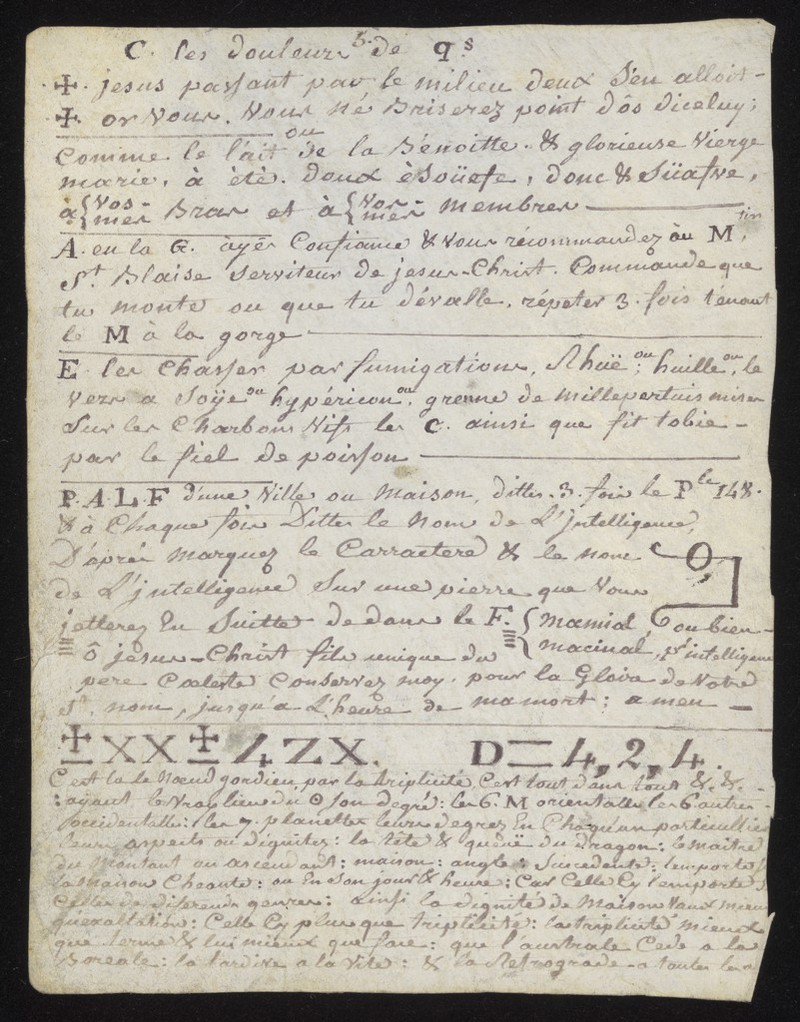 C. les douleurs de q.s
✠. jesus passant par le milieu deux s'en alloit-
✠. or vous. vous né Briserez point d'ôs diceluy;
ou
comme le lait de la Bénoitte. & glorieuse vierge
marie. à èté. doux èsoüefe, donc & süafve,
à {vos- mes Bras et à {vos- mes membres
A. en la G. àyés Confiance & vous récommandez àu M.tin
St. Blaise serviteur de jesus-Christ. Commande que
tu monte ou que tu dévalle. répeter 3. fois tenant
le M à la gorge
E les Chasser par fumigations, Rhuë; ou huille, ou le
vers a soÿe ou hypéricon, ou grenne de millepertuis mises
sur les Charbons vifs les C. ainsi que fit tobie-
par le fiel de poisson
P. A. L. F d'une ville ou maison, dittes. 3. fois le Ple 148.
& à Chaque fois Dittes le nom de L'jntelligence,
D'aprés marquez le Carractere & le nom
de L'jntelligence sur une pierre que vous
jetterez En suitte dedans le F. {mamial, ou bien-
macinal, pr intelligence
ô jesus-Christ fils unique du
pere Cæleste Conservez moy. pour la Gloire de votre
St. nom, jusqu'a L'heure de ma mort: amen-
XX 4ZX. D=4,2,4.
C'est la le Nœud gordien, par la triplicité, C'est tout dans tout &. &.
: ayant le vray lieu du ☉ son degré: les 6. M orientalles les 6 autres
occidentalle: les 7. planettes leurs degrez En Chaqu'un particullier
leurs aspects ou dignitez: la tête & queuë du Dragon: le maitre
du Montant ou ascendant: maison: angle: Succedente: lemporte
la maison Cheante: ou En son jour & heure: Car Celle Cy l'emporte
Celles de diferends genres: Ainsi la dignité de Maison vaux mieux
qu'exaltation: Celle Cy plus que triplicité: la triplicité mieux
que terme & lui mieux que face: que l'australe Cede a la
Boreale: la tardive a la vite: & la Retrograde a toutes les